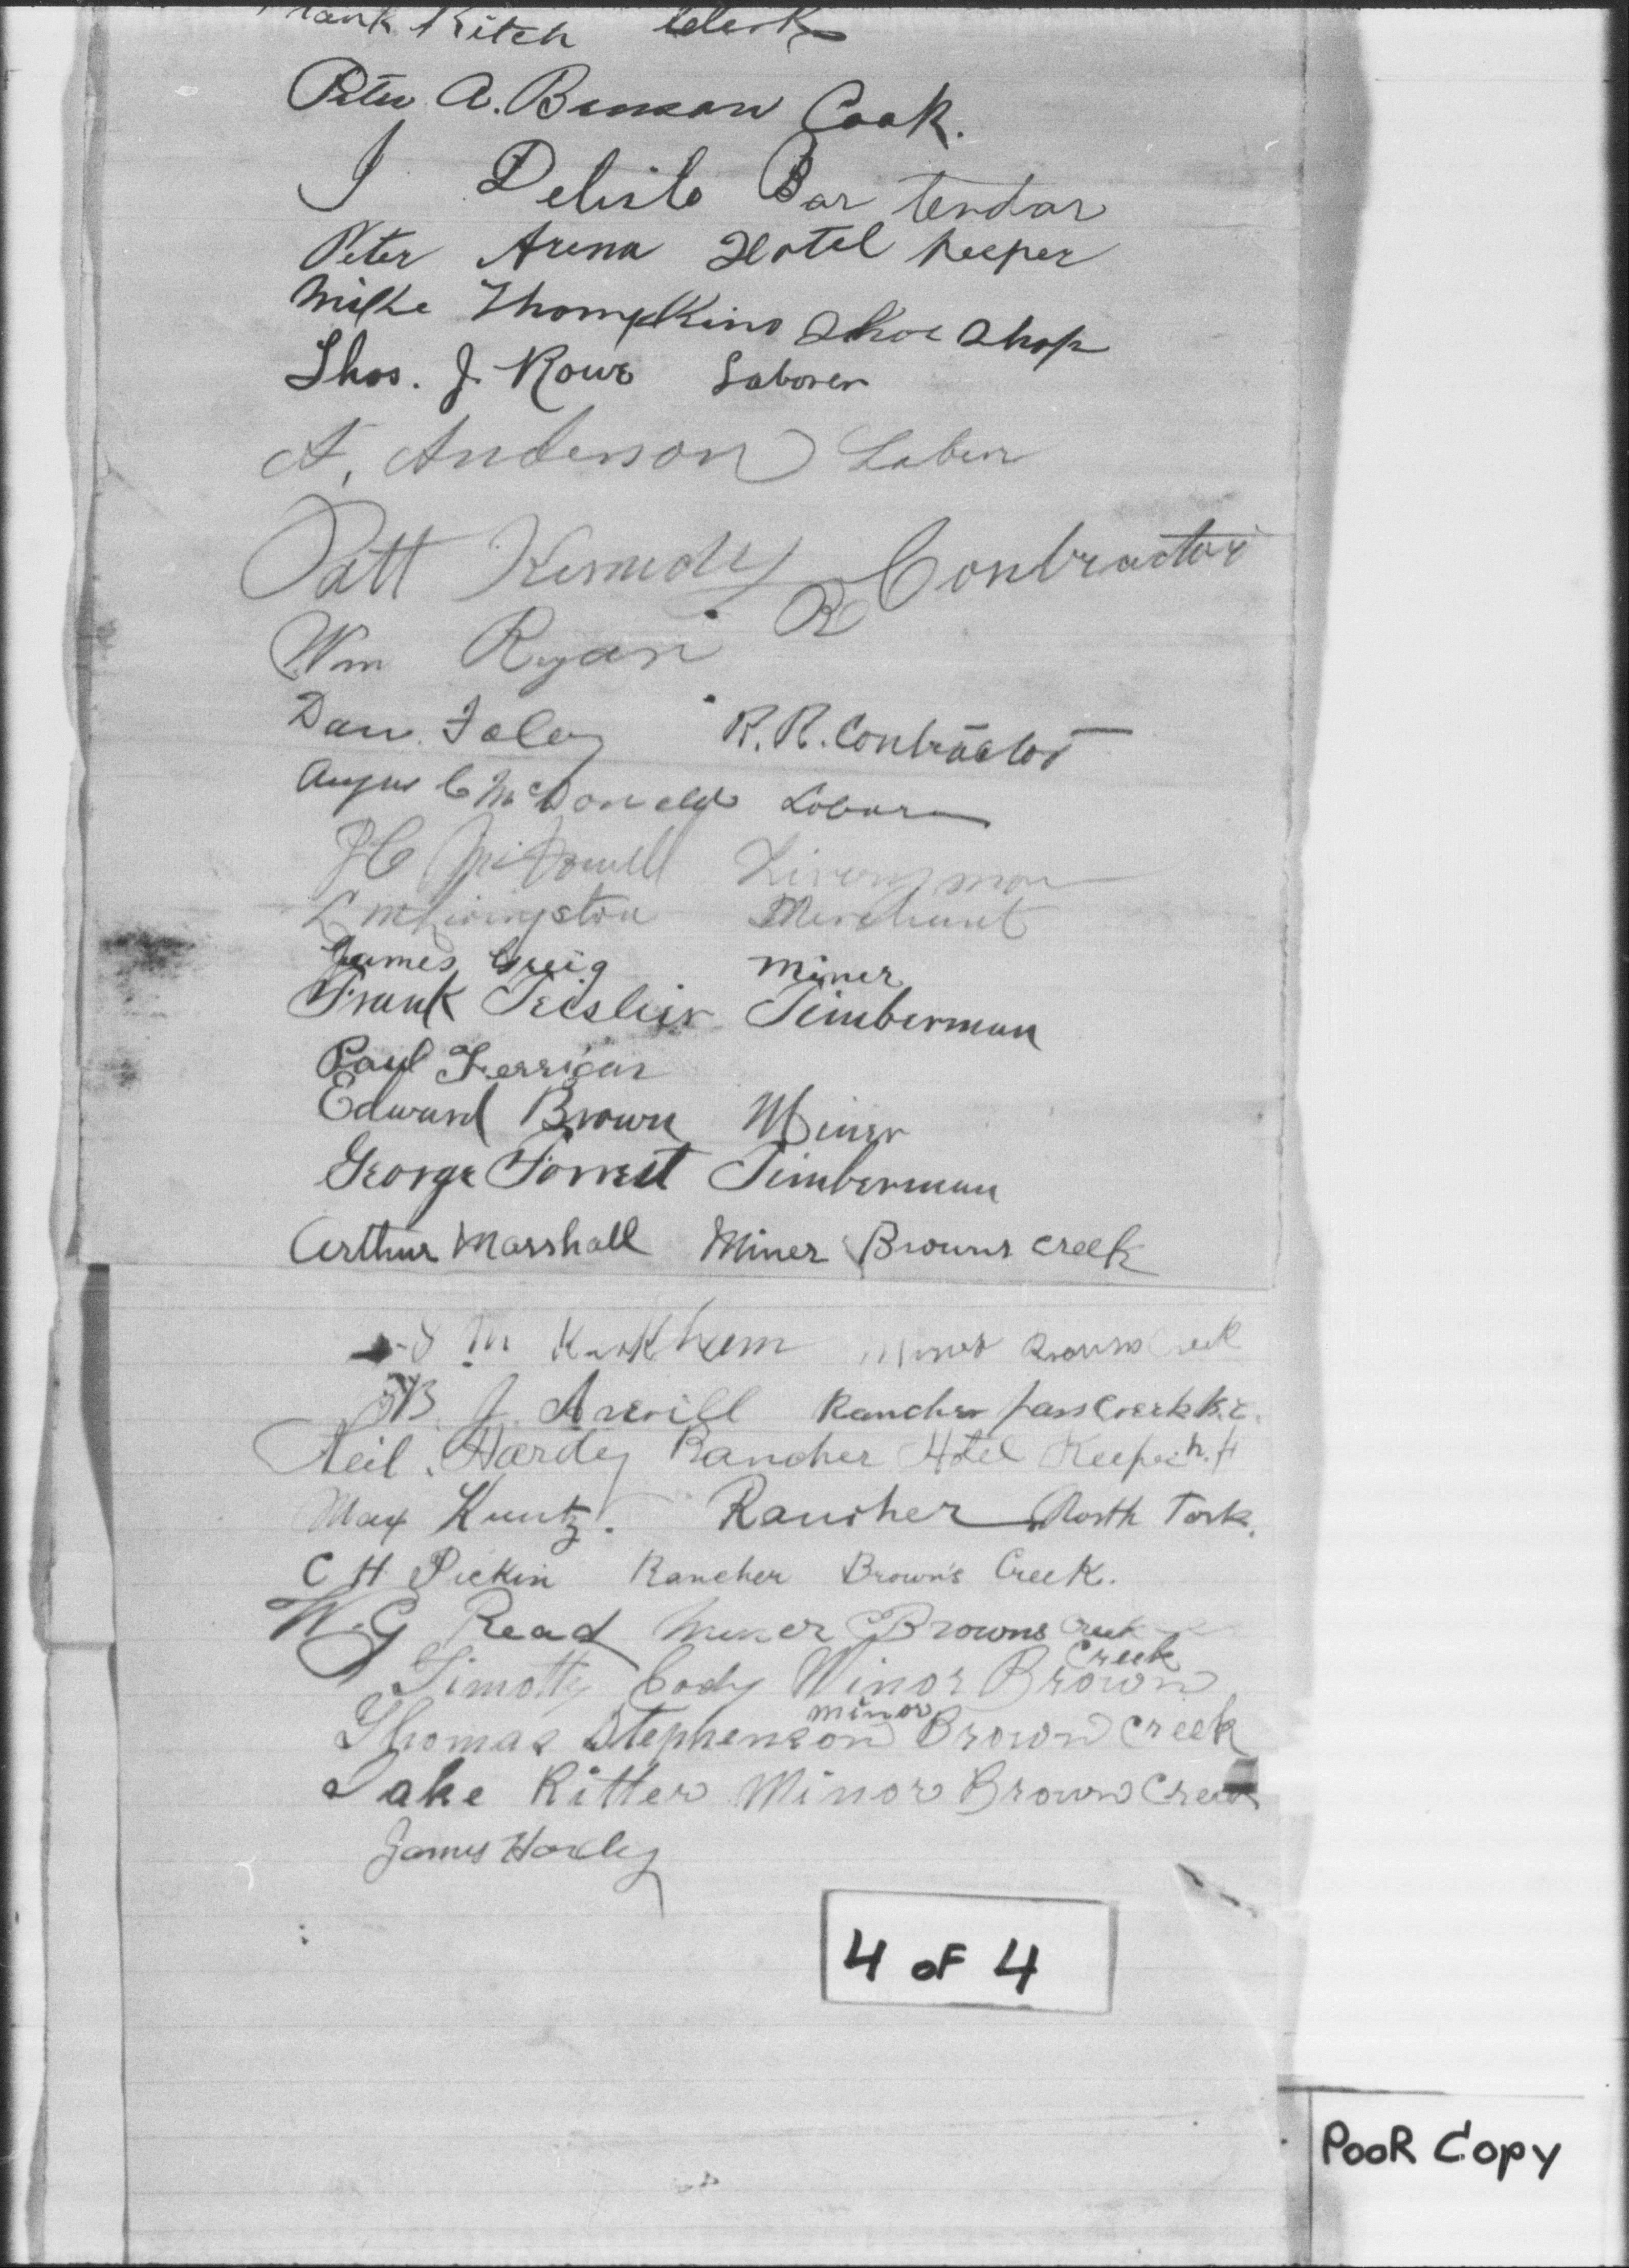 Kitch Clerk
Peter A. Benson Cook.
J Delisle Bar tendar
Peter Arena Hotel keeper
Mike Thompkins Shoe Shop
Thos. J. Rowe Laborer
A. Anderson Labor
Patt Kennedy Contractor
Wm Ryan R
Dan. Foley R.R. Contractor
Angus C McDonald Labor
J C McDowell Liveryman
L M Livingston Merchant
James Greig Miner
Frank Timberman
Paul Ferrigan
Edward Brown Miner
George Forrest Timberman
Arthur Marshall Miner Browns Creek
M Kirkham Miner Browns Creek
B. J. Averill Rancher Pass Creek B.C.
Neil Hardy Rancher Hotel Keeper N.F
Max Kuntz. Rancher North Fork.
C H Pickin Rancher Brown's Creek.
W. G Read Miner Browns Creek
Timothy Cody Minor Brown Creek
Thomas Stephenson minor Brown Creek
Jake Ritter Minor Brown Creek
James Hardy
4 OF 4
POOR COPY